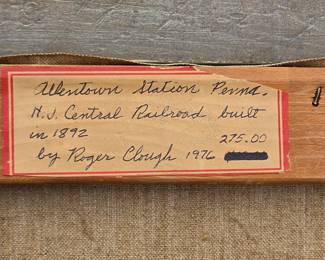 Allentown Station Penna.
N.J. Central Railroad built
in 1892
275.00
by Roger Clough 1976